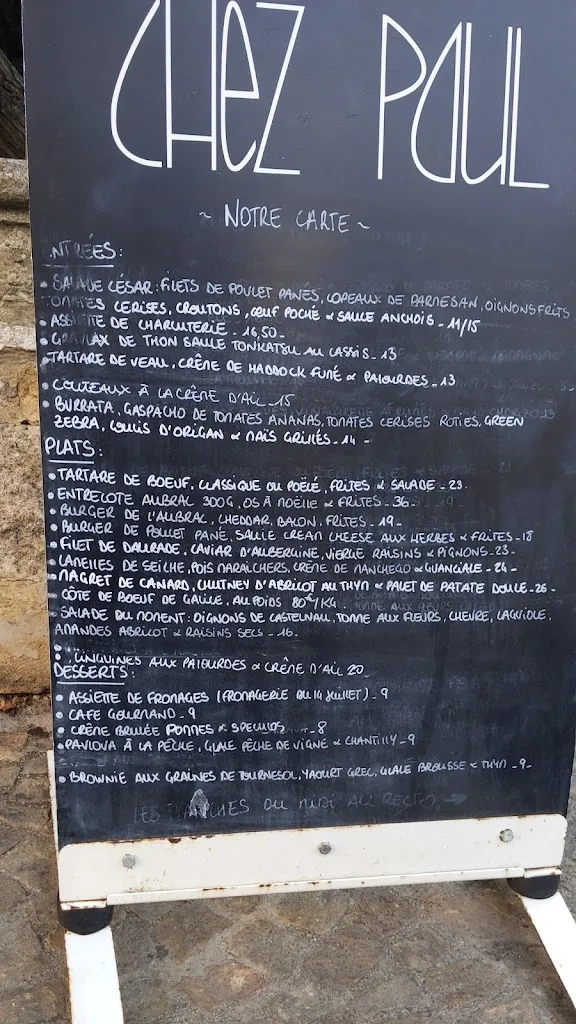 CHEZ PAUL
~ NOTRE CARTE ~
NTRÉES :
• SALADE CÉSAR : FILETS DE POULET PANÉS, COPEAUX DE PARMESAN, OIGNONS FRITS
TOMATES CERISES, CROUTONS, ŒUF POCHÉ & SAUCE ANCHOIS - 11/15
• ASSIETTE DE CHARCUTERIE - 16,50 -
• GRAVLAX DE THON SAUCE TONKATSU AU CASSIS - 13
TARTARE DE VEAU, CRÈME DE HADDOCK FUMÉ & PALOURDES - 13
• COUTEAUX À LA CRÈME D'AIL - 15
• BURRATA, GASPACHO DE TOMATES ANANAS, TOMATES CERISES ROTIES, GREEN
ZEBRA, COULIS D'ORIGAN & MAÏS GRILLÉS - 14 -
PLATS :
• TARTARE DE BOEUF, CLASSIQUE OU POÊLÉ, FRITES & SALADE - 23 -
• ENTRECOTE AUBRAC 300G, OS À MOËLLE & FRITES - 36 -
• BURGER DE L'AUBRAC, CHEDDAR, BACON, FRITES - 19 -
• BURGER DE POULET PANÉ, SAUCE CREAM CHEESE AUX HERBES & FRITES - 18
• FILET DE DAURADE, CAVIAR D'AUBERGINE, VIERGE RAISINS & PIGNONS - 23 -
• LAMELLES DE SEICHE, POIS MARAICHERS, CRÈME DE MANCHEGO & GUANCIALE - 24 -
• MAGRET DE CANARD, CHUTNEY D'ABRICOT AU THYM & PALET DE PATATE DOUCE - 26 -
• CÔTE DE BOEUF DE GALICE, AU POIDS 80€/KG
• SALADE DU MOMENT : OIGNONS DE CASTELNAU, TOMME AUX FLEURS, CHEVRE, LAGUIOLE,
AMANDES ABRICOT & RAISINS SECS - 16 -
• LINGUINES AUX PALOURDES & CRÈME D'AIL 20
DESSERTS :
• ASSIETTE DE FROMAGES (FROMAGERIE DU 14 JUILLET) - 9
• CAFE GOURMAND - 9
• CRÈME BRULÉE POMMES & SPECULOS - 8
• PAVLOVA À LA PÊCHE, GLACE PÊCHE DE VIGNE & CHANTILLY - 9
• BROWNIE AUX GRAINES DE TOURNESOL, YAOURT GREC, GLACE BROUSSE & THYM - 9 -
LES PLANCHES DU MIDI AU RECTO →